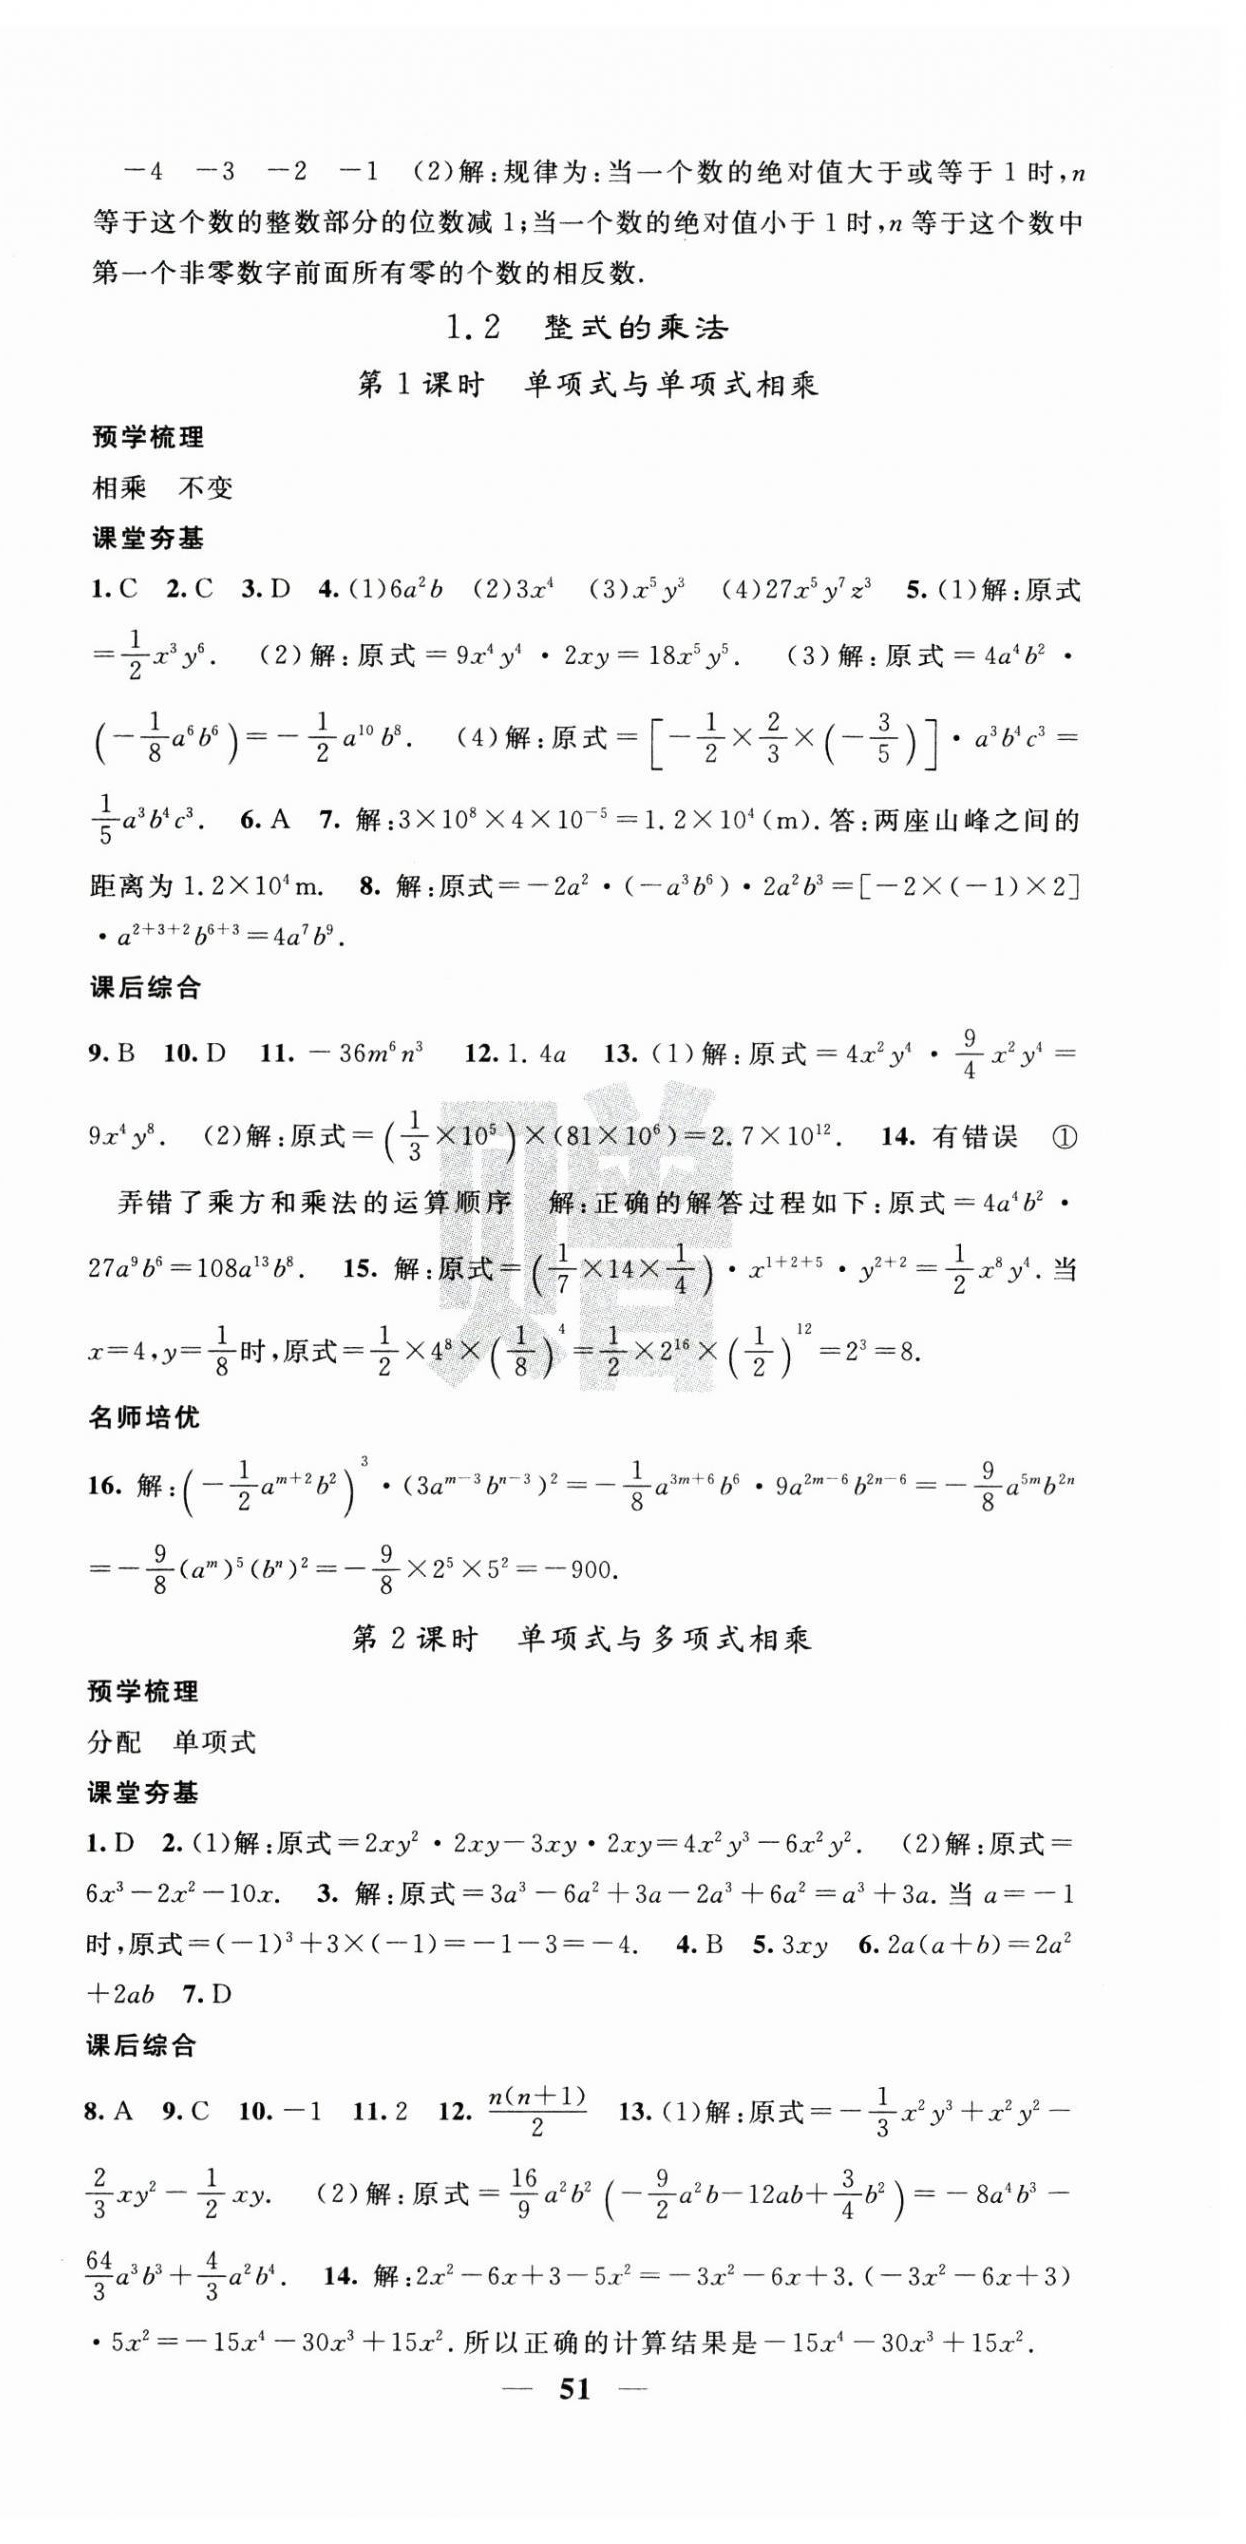 －4　－3　－2　－1　(2)解:规律为:当一个数的绝对值大于或等于1时,n
等于这个数的整数部分的位数减1;当一个数的绝对值小于1时,n等于这个数中
第一个非零数字前面所有零的个数的相反数.
1.2　整式的乘法
第1课时　单项式与单项式相乘
预学梳理
相乘　不变
课堂夯基
1.C　2.C　3.D　4.(1)6a²b　(2)3x⁴　(3)x⁵y³　(4)27x⁵y⁷z³　5.(1)解:原式
=1/2x³y⁶.　(2)解:原式=9x⁴y⁴·2xy=18x⁵y⁵.　(3)解:原式=4a⁴b²·
(-1/8a⁶b⁶)=-1/2a¹⁰b⁸.　(4)解:原式=[-1/2×2/3×(-3/5)]·a³b⁴c³=
1/5a³b⁴c³.　6.A　7.解:3×10⁸×4×10⁻⁵=1.2×10⁴(m).答:两座山峰之间的
距离为1.2×10⁴m.　8.解:原式=-2a²·(-a³b⁶)·2a²b³=[-2×(-1)×2]
·a²⁺³⁺²b⁶⁺³=4a⁷b⁹.
课后综合
9.B　10.D　11.-36m⁶n³　12.1.4a　13.(1)解:原式=4x²y⁴·9/4x²y⁴=
9x⁴y⁸.　(2)解:原式=(1/3×10⁵)×(81×10⁶)=2.7×10¹².　14.有错误　①
弄错了乘方和乘法的运算顺序　解:正确的解答过程如下:原式=4a⁴b²·
27a⁹b⁶=108a¹³b⁸.　15.解:原式=(1/7×14×1/4)·x¹⁺²⁺⁵·y²⁺²=1/2x⁸y⁴.当
x=4,y=1/8时,原式=1/2×4⁸×(1/8)⁴=1/2×2¹⁶×(1/2)¹²=2³=8.
名师培优
16.解:(-1/2aᵐ⁺²b²)³·(3aᵐ⁻³bⁿ⁻³)²=-1/8a³ᵐ⁺⁶b⁶·9a²ᵐ⁻⁶b²ⁿ⁻⁶=-9/8a⁵ᵐb²ⁿ
=-9/8(aᵐ)⁵(bⁿ)²=-9/8×2⁵×5²=-900.
第2课时　单项式与多项式相乘
预学梳理
分配　单项式
课堂夯基
1.D　2.(1)解:原式=2xy²·2xy-3xy·2xy=4x²y³-6x²y².　(2)解:原式=
6x³-2x²-10x.　3.解:原式=3a³-6a²+3a-2a³+6a²=a³+3a.当a=-1
时,原式=(-1)³+3×(-1)=-1-3=-4.　4.B　5.3xy　6.2a(a+b)=2a²
+2ab　7.D
课后综合
8.A　9.C　10.-1　11.2　12.n(n+1)/2　13.(1)解:原式=-1/3x²y³+x²y²-
2/3xy²-1/2xy.　(2)解:原式=16/9a²b²(-9/2a²b-12ab+3/4b²)=-8a⁴b³-
64/3a³b³+4/3a²b⁴.　14.解:2x²-6x+3-5x²=-3x²-6x+3.(-3x²-6x+3)
·5x²=-15x⁴-30x³+15x².所以正确的计算结果是-15x⁴-30x³+15x².
— 51 —